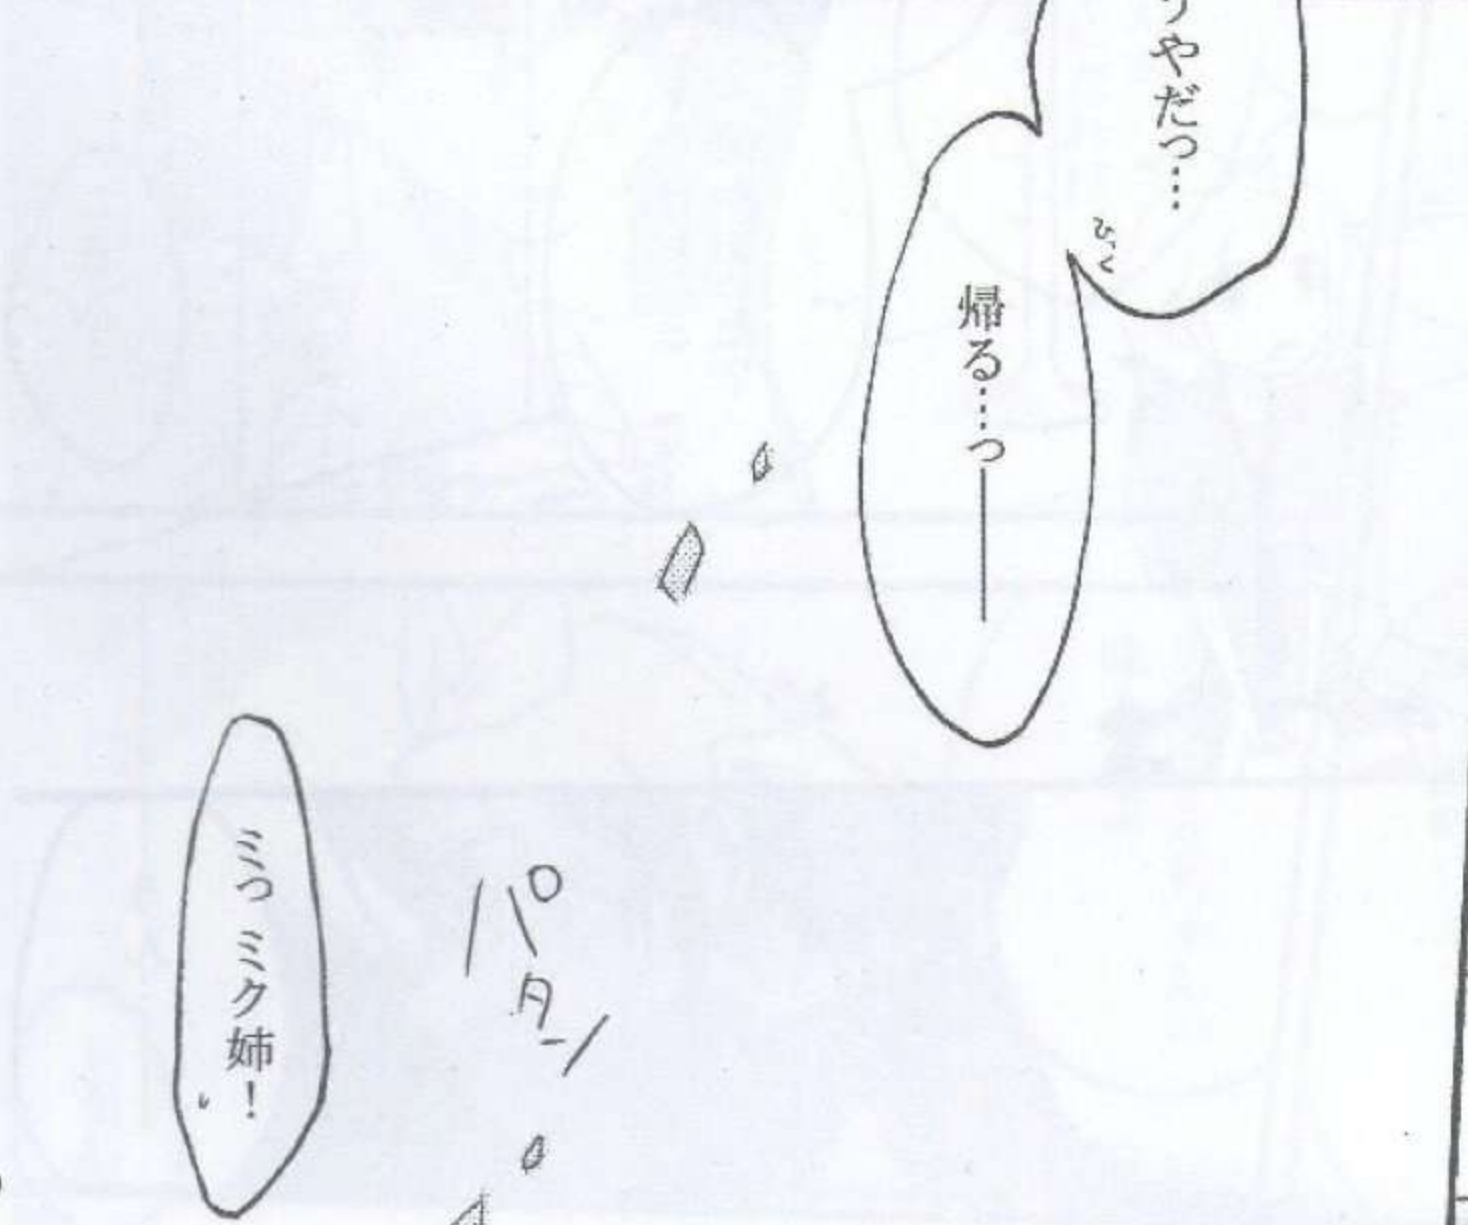 やだっ…
ひっく
帰る…っ――
パタン
ミっ ミク姉!